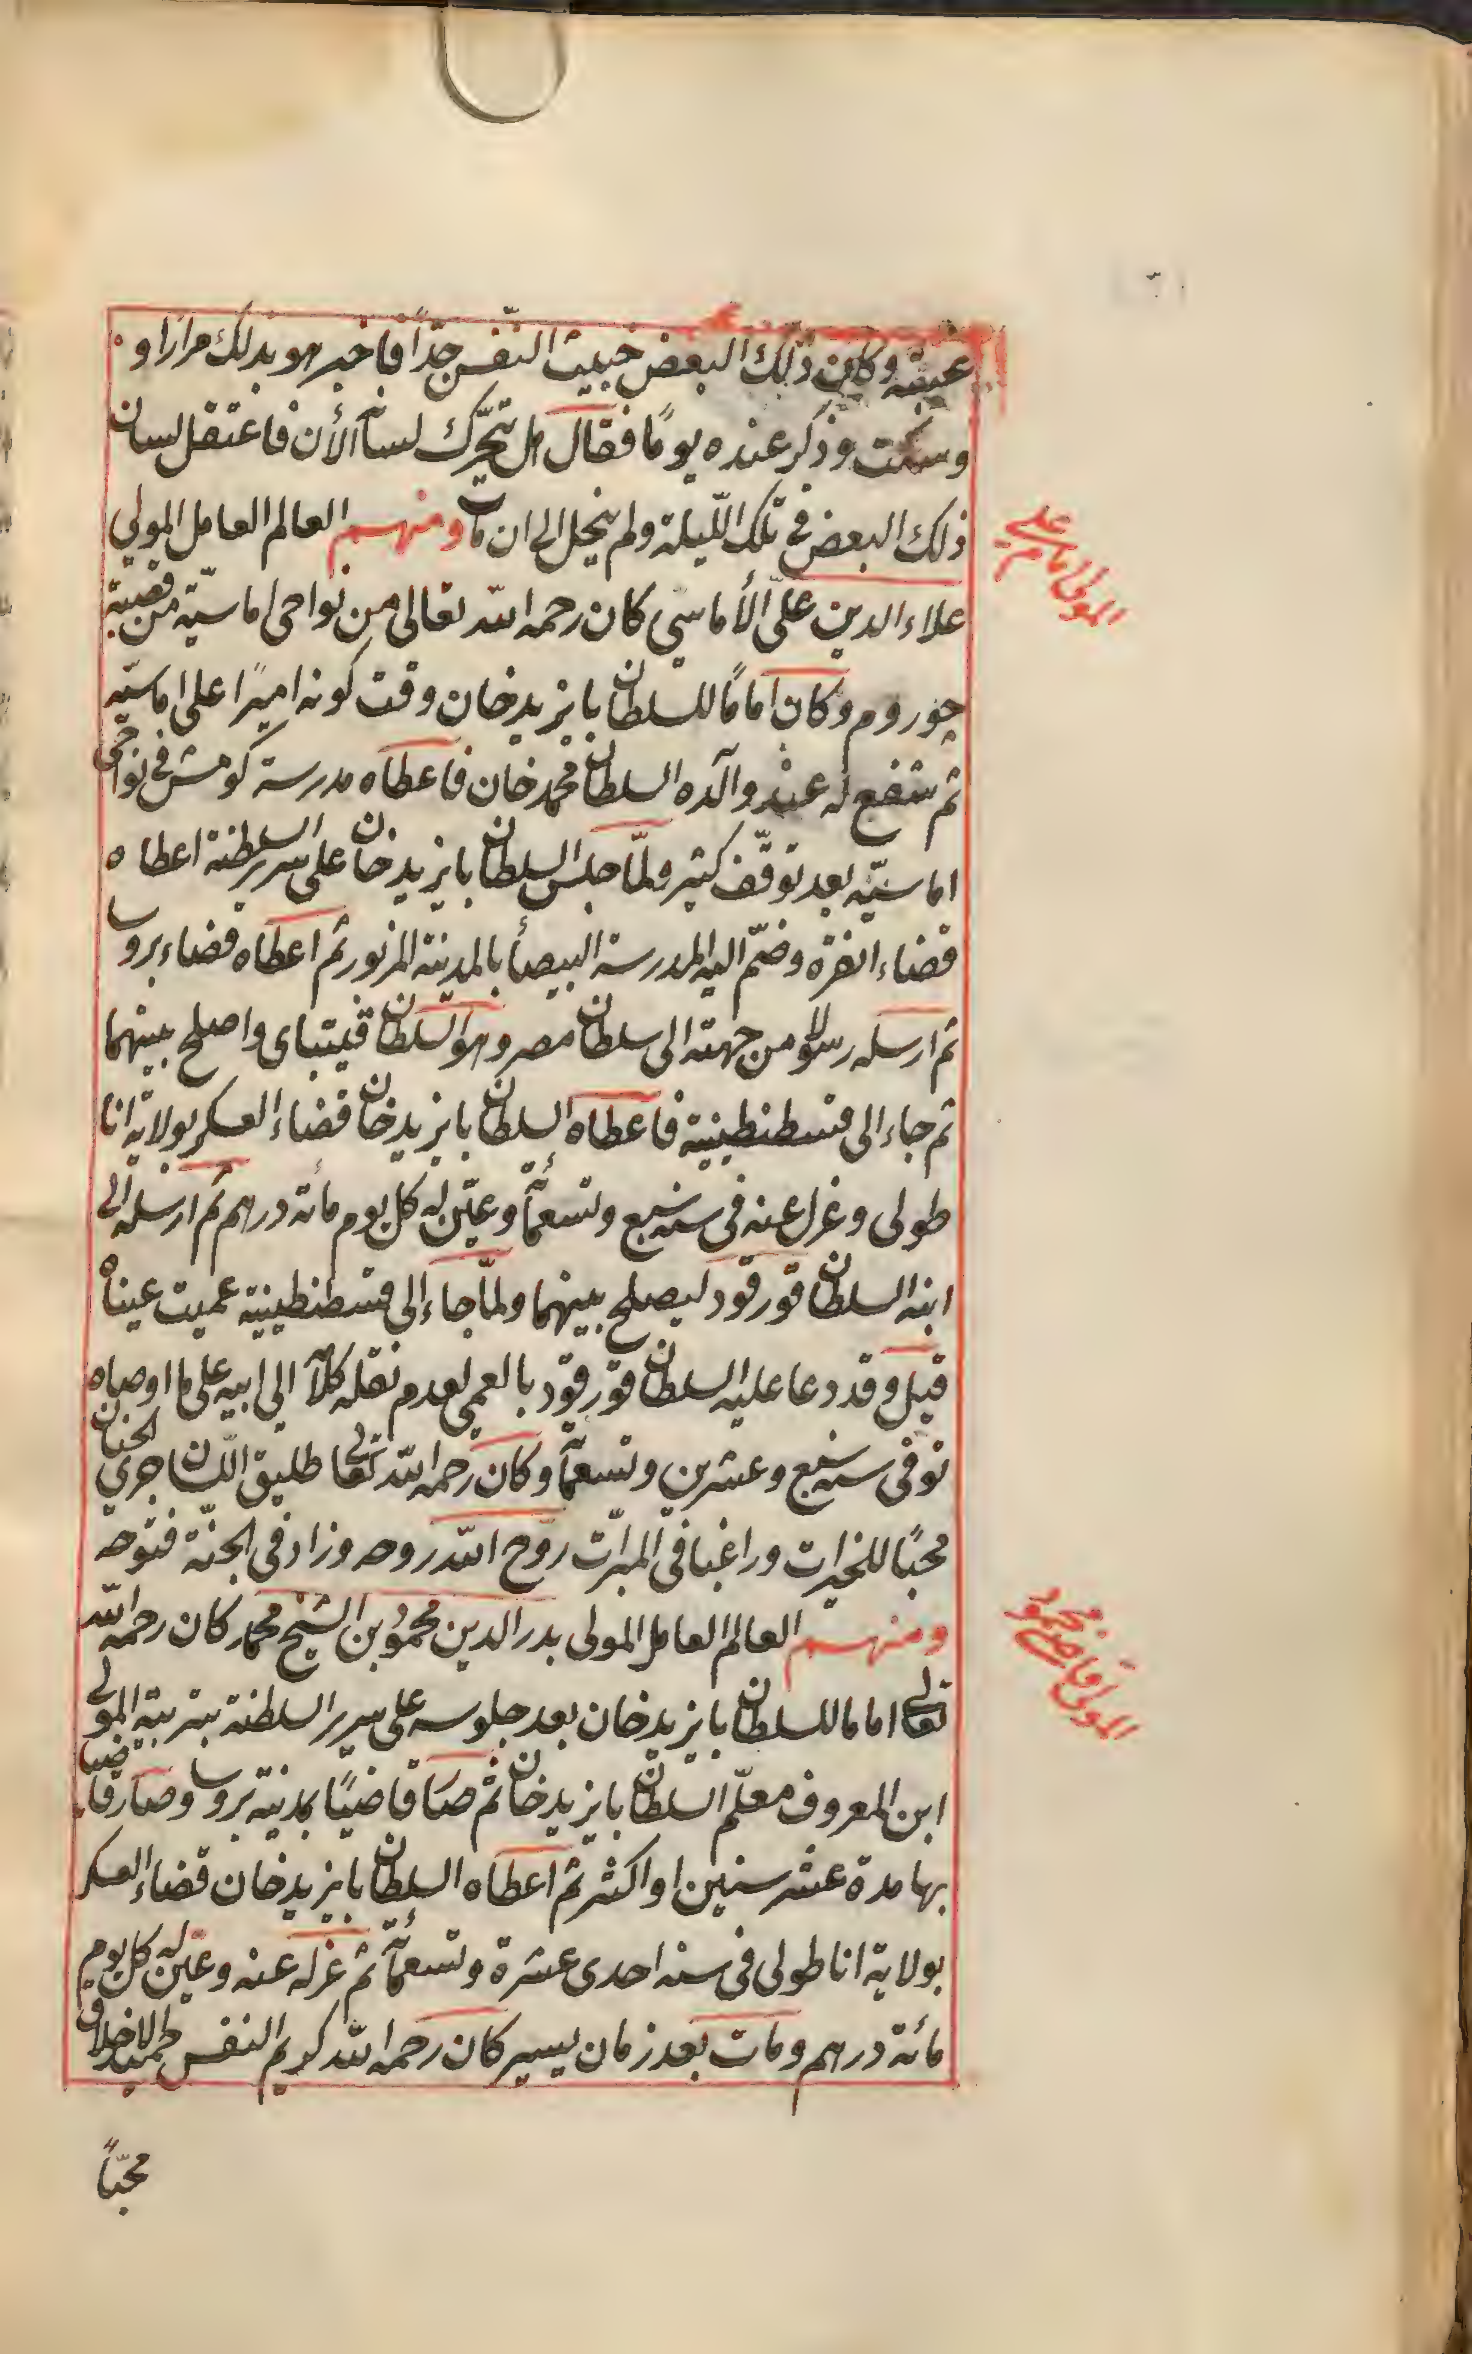 غيبته وكان ذلك البعض خبيث النفس جدّاً فاخبر هو بذلك مرارا و
وسكت وذكر عنده يومًا فقال هل يتحرّك لسانه الأن فاعتقل لسان
ذلك البعض فى تلك اللّيلة ولم ينحل الى ان مات ومنهم العالم العامل المولى
المولى امام على
علاء الدين علىّ الأماسى كان رحمه الله تعالى من نواحى اماسيّه من قصبة
چوروم وكان امامًا للسلطان بايزيد خان وقت كونه اميرًا على اماسيّه
ثم شفع له عند والده السلطان محمد خان فاعطاه مدرسة كومش فى نواحى
اماسيّه بعد توقّف كثير ولمّا جلس السلطان بايزيد خان على سرير السلطنة اعطاه
قضاء انقره وضمّ اليه المدرسة البيضأ بالمدينة المزبور ثم اعطاه قضاء بروسا
ثم ارسله رسولا من جهته الى سلطان مصر وهو السلطان قيتباى واصلح بينهما
ثم جاء الى قسطنطينية فاعطاه السلطان بايزيد خان قضاء العسكر بولاية انا
طولى وعزل عنه فى سنه سبع وتسعمأة وعيّن له كل يوم مائة درهم ثم ارسله الى
ابنه السلطان قورقود ليصلح بينهما ولمّا جاء الى قسطنطينية عميت عيناه
قيل وقد دعا عليه السلطان قورقود بالعمى لعدم نقله كلامه الى ابيه على ما اوصاه
توفى سنه سبع وعشرين وتسعمأة وكان رحمه الله تعالى طليق اللسان جرى الجنان
محبًا للخيرات وراغبا فى المبرّات روّح الله روحه وزاد فى الجنّة فتوحه
ومنهم العالم العامل المولى بدر الدين محمود بن الشيخ محمد كان رحمه الله
المولى قاضى محمود
تعالى اماما للسلطان بايزيد خان بعد جلوسه على سرير السلطنة بتربية المولى
ابن المعروف معلّم السلطان بايزيد خان ثم صار قاضيًا بمدينة بروسا وصار قاضيا
بها مدة عشر سنين او اكثر ثم اعطاه السلطان بايزيد خان قضاء العسكر
بولاية اناطولى فى سنه احدى عشرة وتسعمأة ثم عزله عنه وعيّن له كل يوم
مائة درهم ومات بعد زمان يسير كان رحمه الله كريم النفس حميد الاخلاق
محبّاً